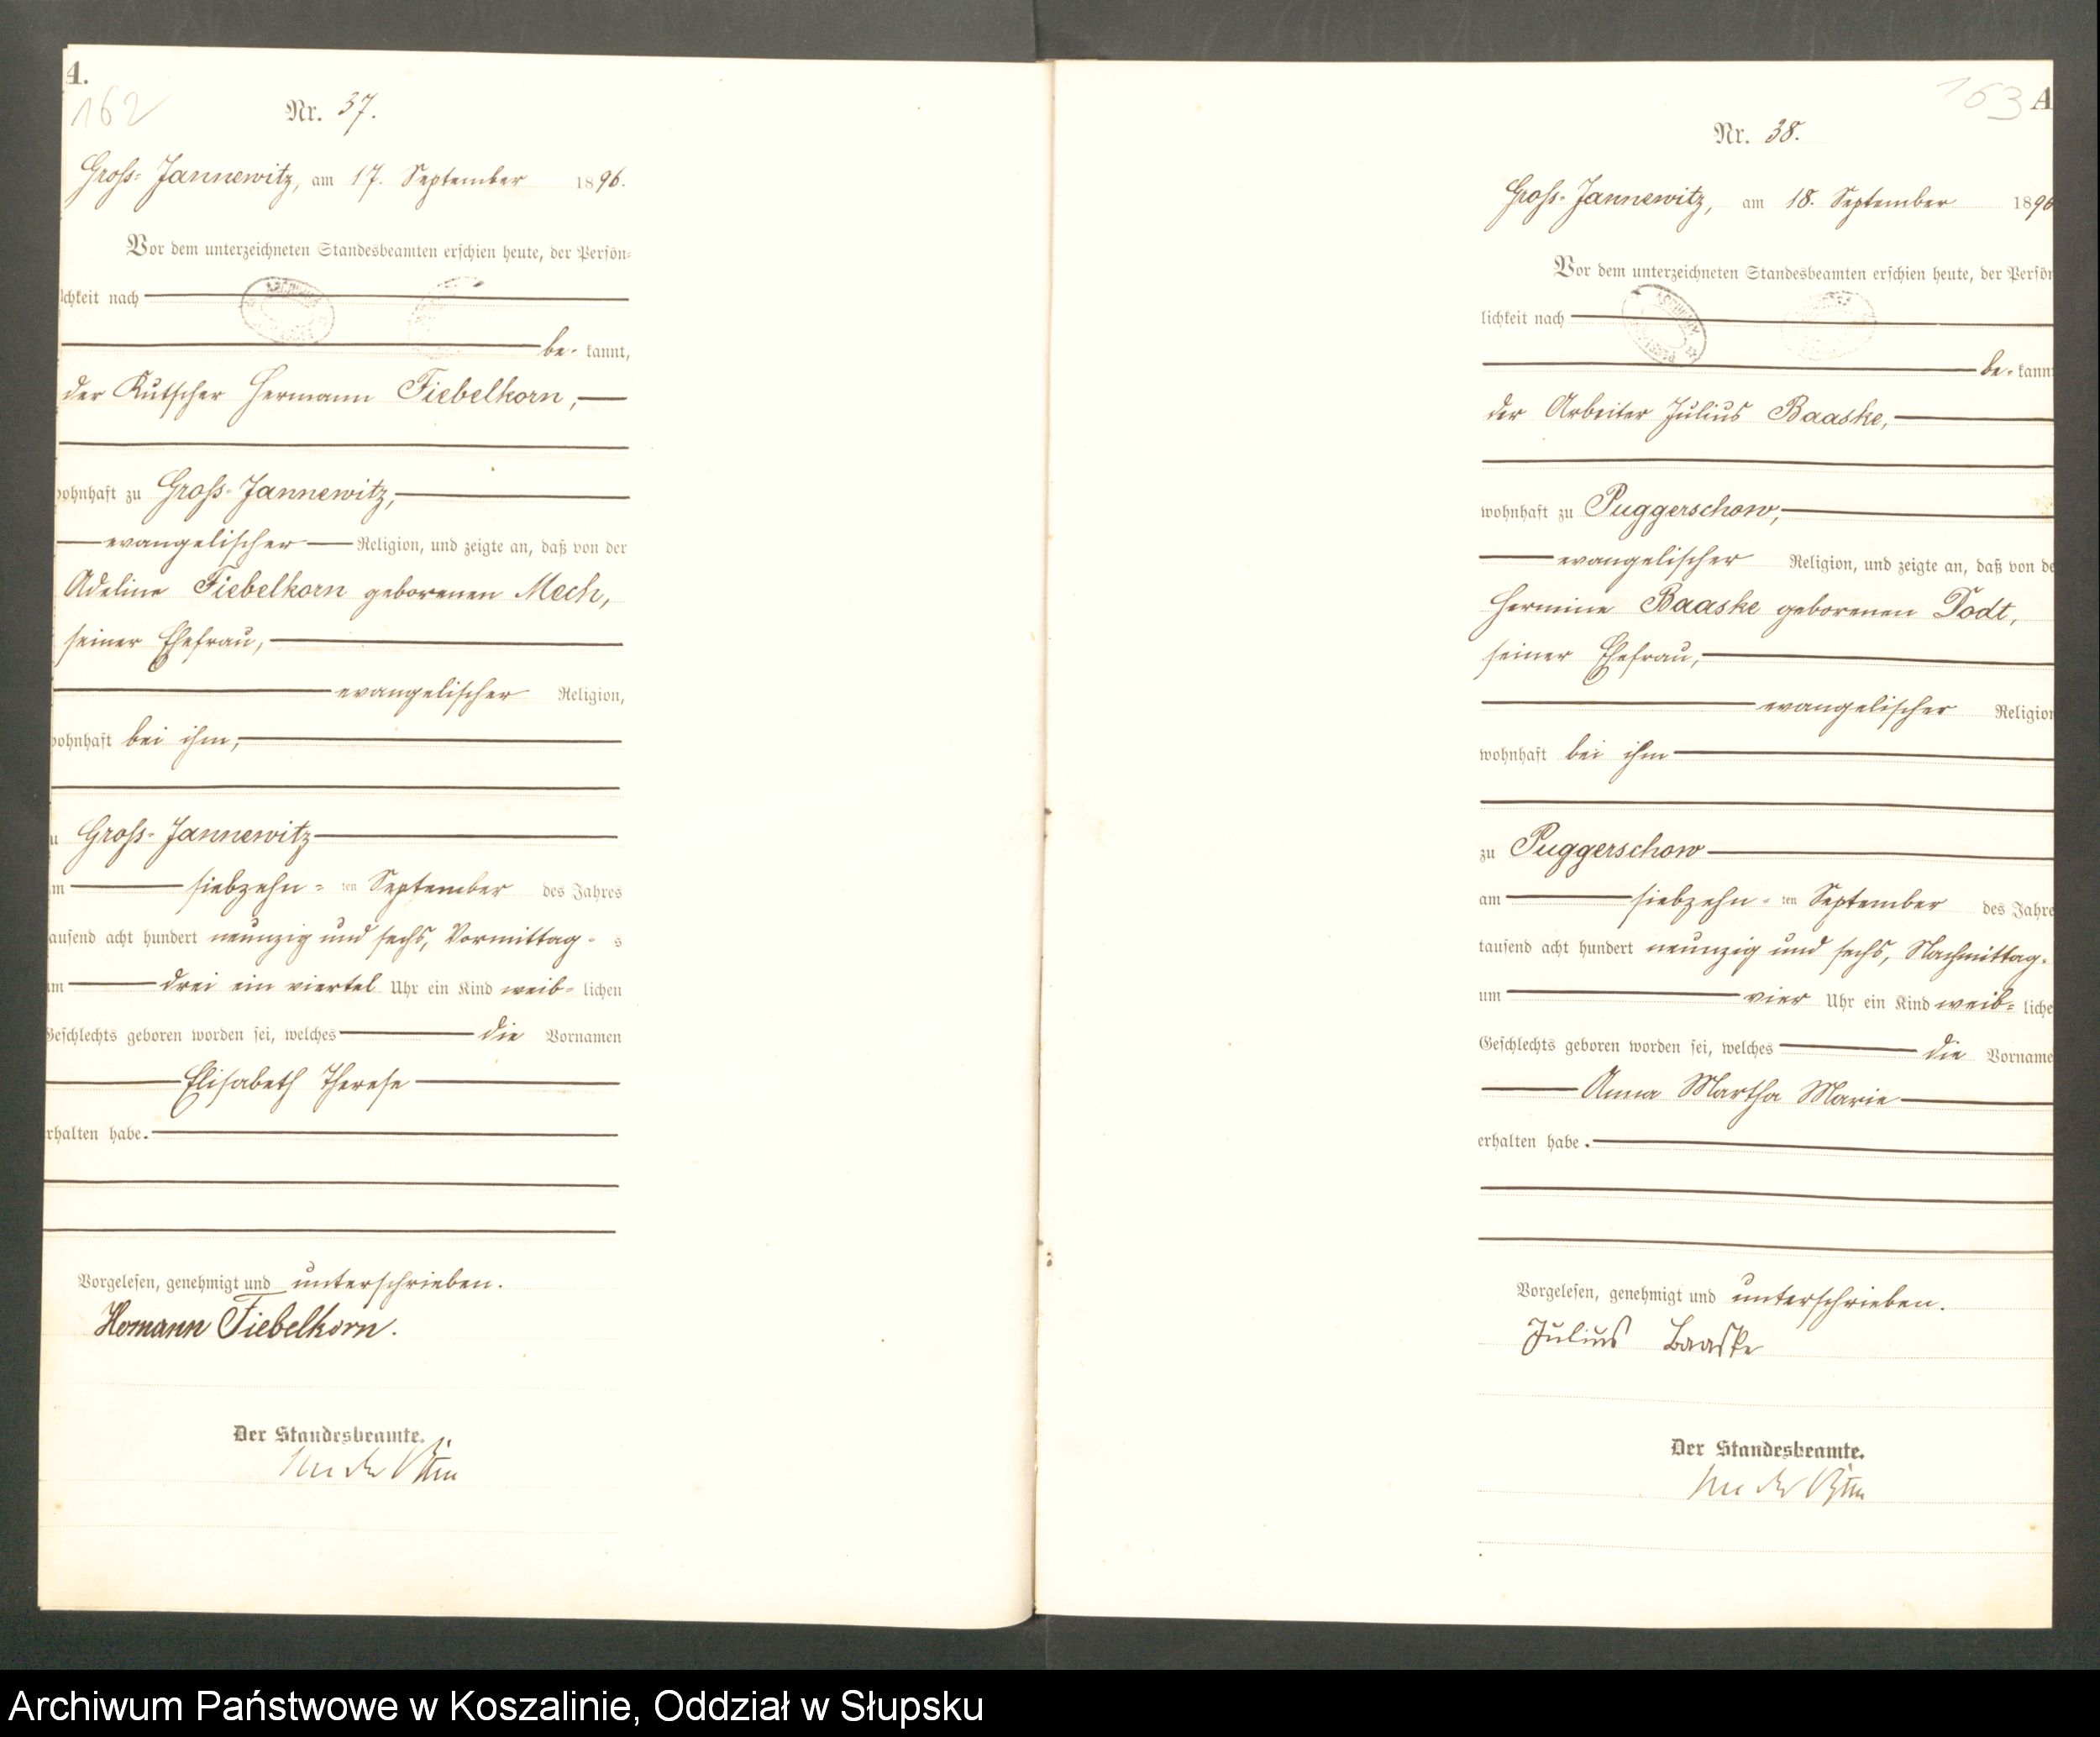 A.
162
Nr. 37.
Groß-Jannewitz, am 17. September 1896.
Vor dem unterzeichneten Standesbeamten erschien heute, der Persön-
lichkeit nach
be- kannt,
der Kutscher Hermann Fiebelkorn,
wohnhaft zu Groß-Jannewitz,
evangelischer Religion, und zeigte an, daß von der
Adeline Fiebelkorn geborenen Mech,
seiner Ehefrau,
evangelischer Religion,
wohnhaft bei ihm,
zu Groß-Jannewitz
am siebzehn-ten September des Jahres
tausend acht hundert neunzig und sechs, Vormittag-s
um drei ein viertel Uhr ein Kind weib-lichen
Geschlechts geboren worden sei, welches die Vornamen
Elisabeth Therese
erhalten habe.
Vorgelesen, genehmigt und unterschrieben.
Hermann Fiebelkorn.
Der Standesbeamte.
163
A
Nr. 38.
Groß-Jannewitz, am 18. September 1896
Vor dem unterzeichneten Standesbeamten erschien heute, der Persön
lichkeit nach
be- kannt
der Arbeiter Julius Baaske,
wohnhaft zu Puggerschow,
evangelischer Religion, und zeigte an, daß von de
Hermine Baaske geborenen Todt,
seiner Ehefrau,
evangelischer Religion
wohnhaft bei ihm
zu Puggerschow
am siebzehn-ten September des Jahre
tausend acht hundert neunzig und sechs, Nachmittag-
um vier Uhr ein Kind weib-liche
Geschlechts geboren worden sei, welches die Vorname
Anna Martha Marie
erhalten habe.
Vorgelesen, genehmigt und unterschrieben.
Julius Baaske
Der Standesbeamte.
Archiwum Państwowe w Koszalinie, Oddział w Słupsku